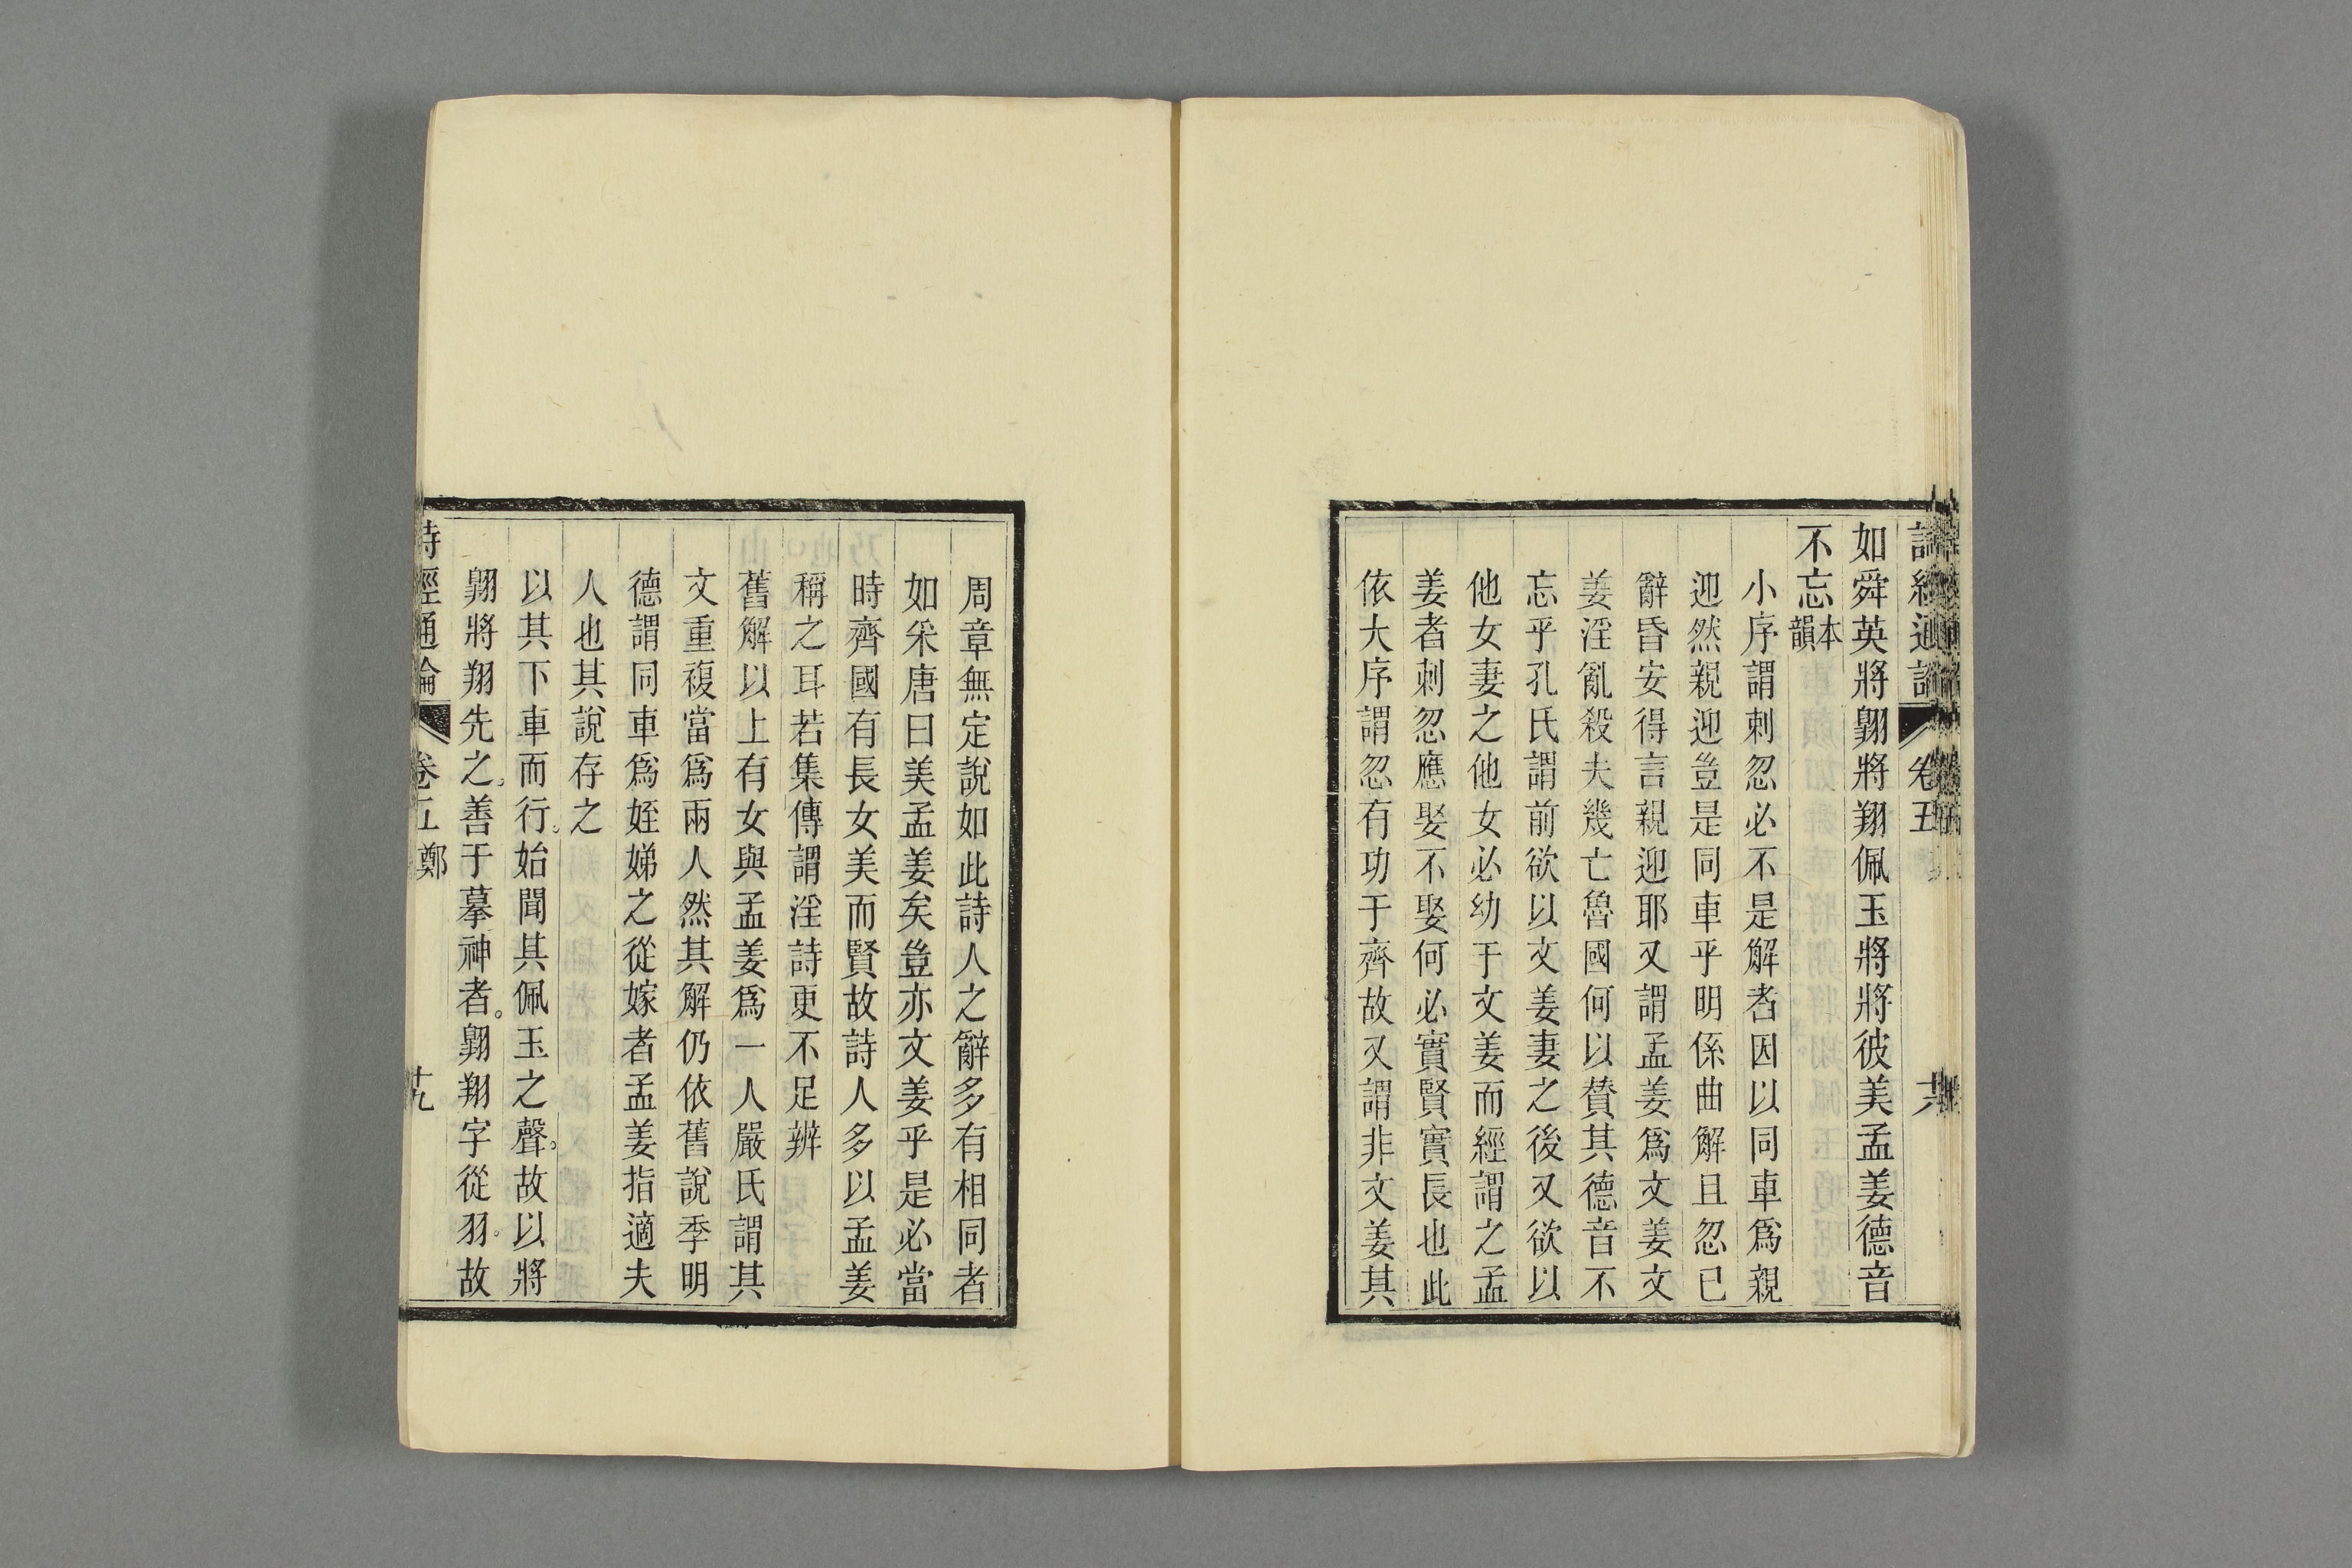 詩經通論 卷五
如舜英將翺將翔佩玉將將彼美孟姜德音
不忘本韻
小序謂刺忽必不是解者因以同車爲親
迎然親迎豈是同車乎明係曲解且忽已
辭昏安得言親迎耶又謂孟姜爲文姜文
姜淫亂殺夫幾亡魯國何以贊其德音不
忘乎孔氏謂前欲以文姜妻之後又欲以
他女妻之他女必幼于文姜而經謂之孟
姜者刺忽應娶不娶何必實賢實長也此
依大序謂忽有功于齊故又謂非文姜其
周章無定說如此詩人之辭多有相同者
如采唐曰美孟姜矣豈亦文姜乎是必當
時齊國有長女美而賢故詩人多以孟姜
稱之耳若集傳謂淫詩更不足辨
舊解以上有女與孟姜爲一人嚴氏謂其
文重複當爲兩人然其解仍依舊說季明
德謂同車爲姪娣之從嫁者孟姜指適夫
人也其說存之
以其下車而行。始聞其佩玉之聲。故以將
翺將翔先之。善于摹神者。翺翔字從羽。故
詩經通論 卷五 鄭 十九